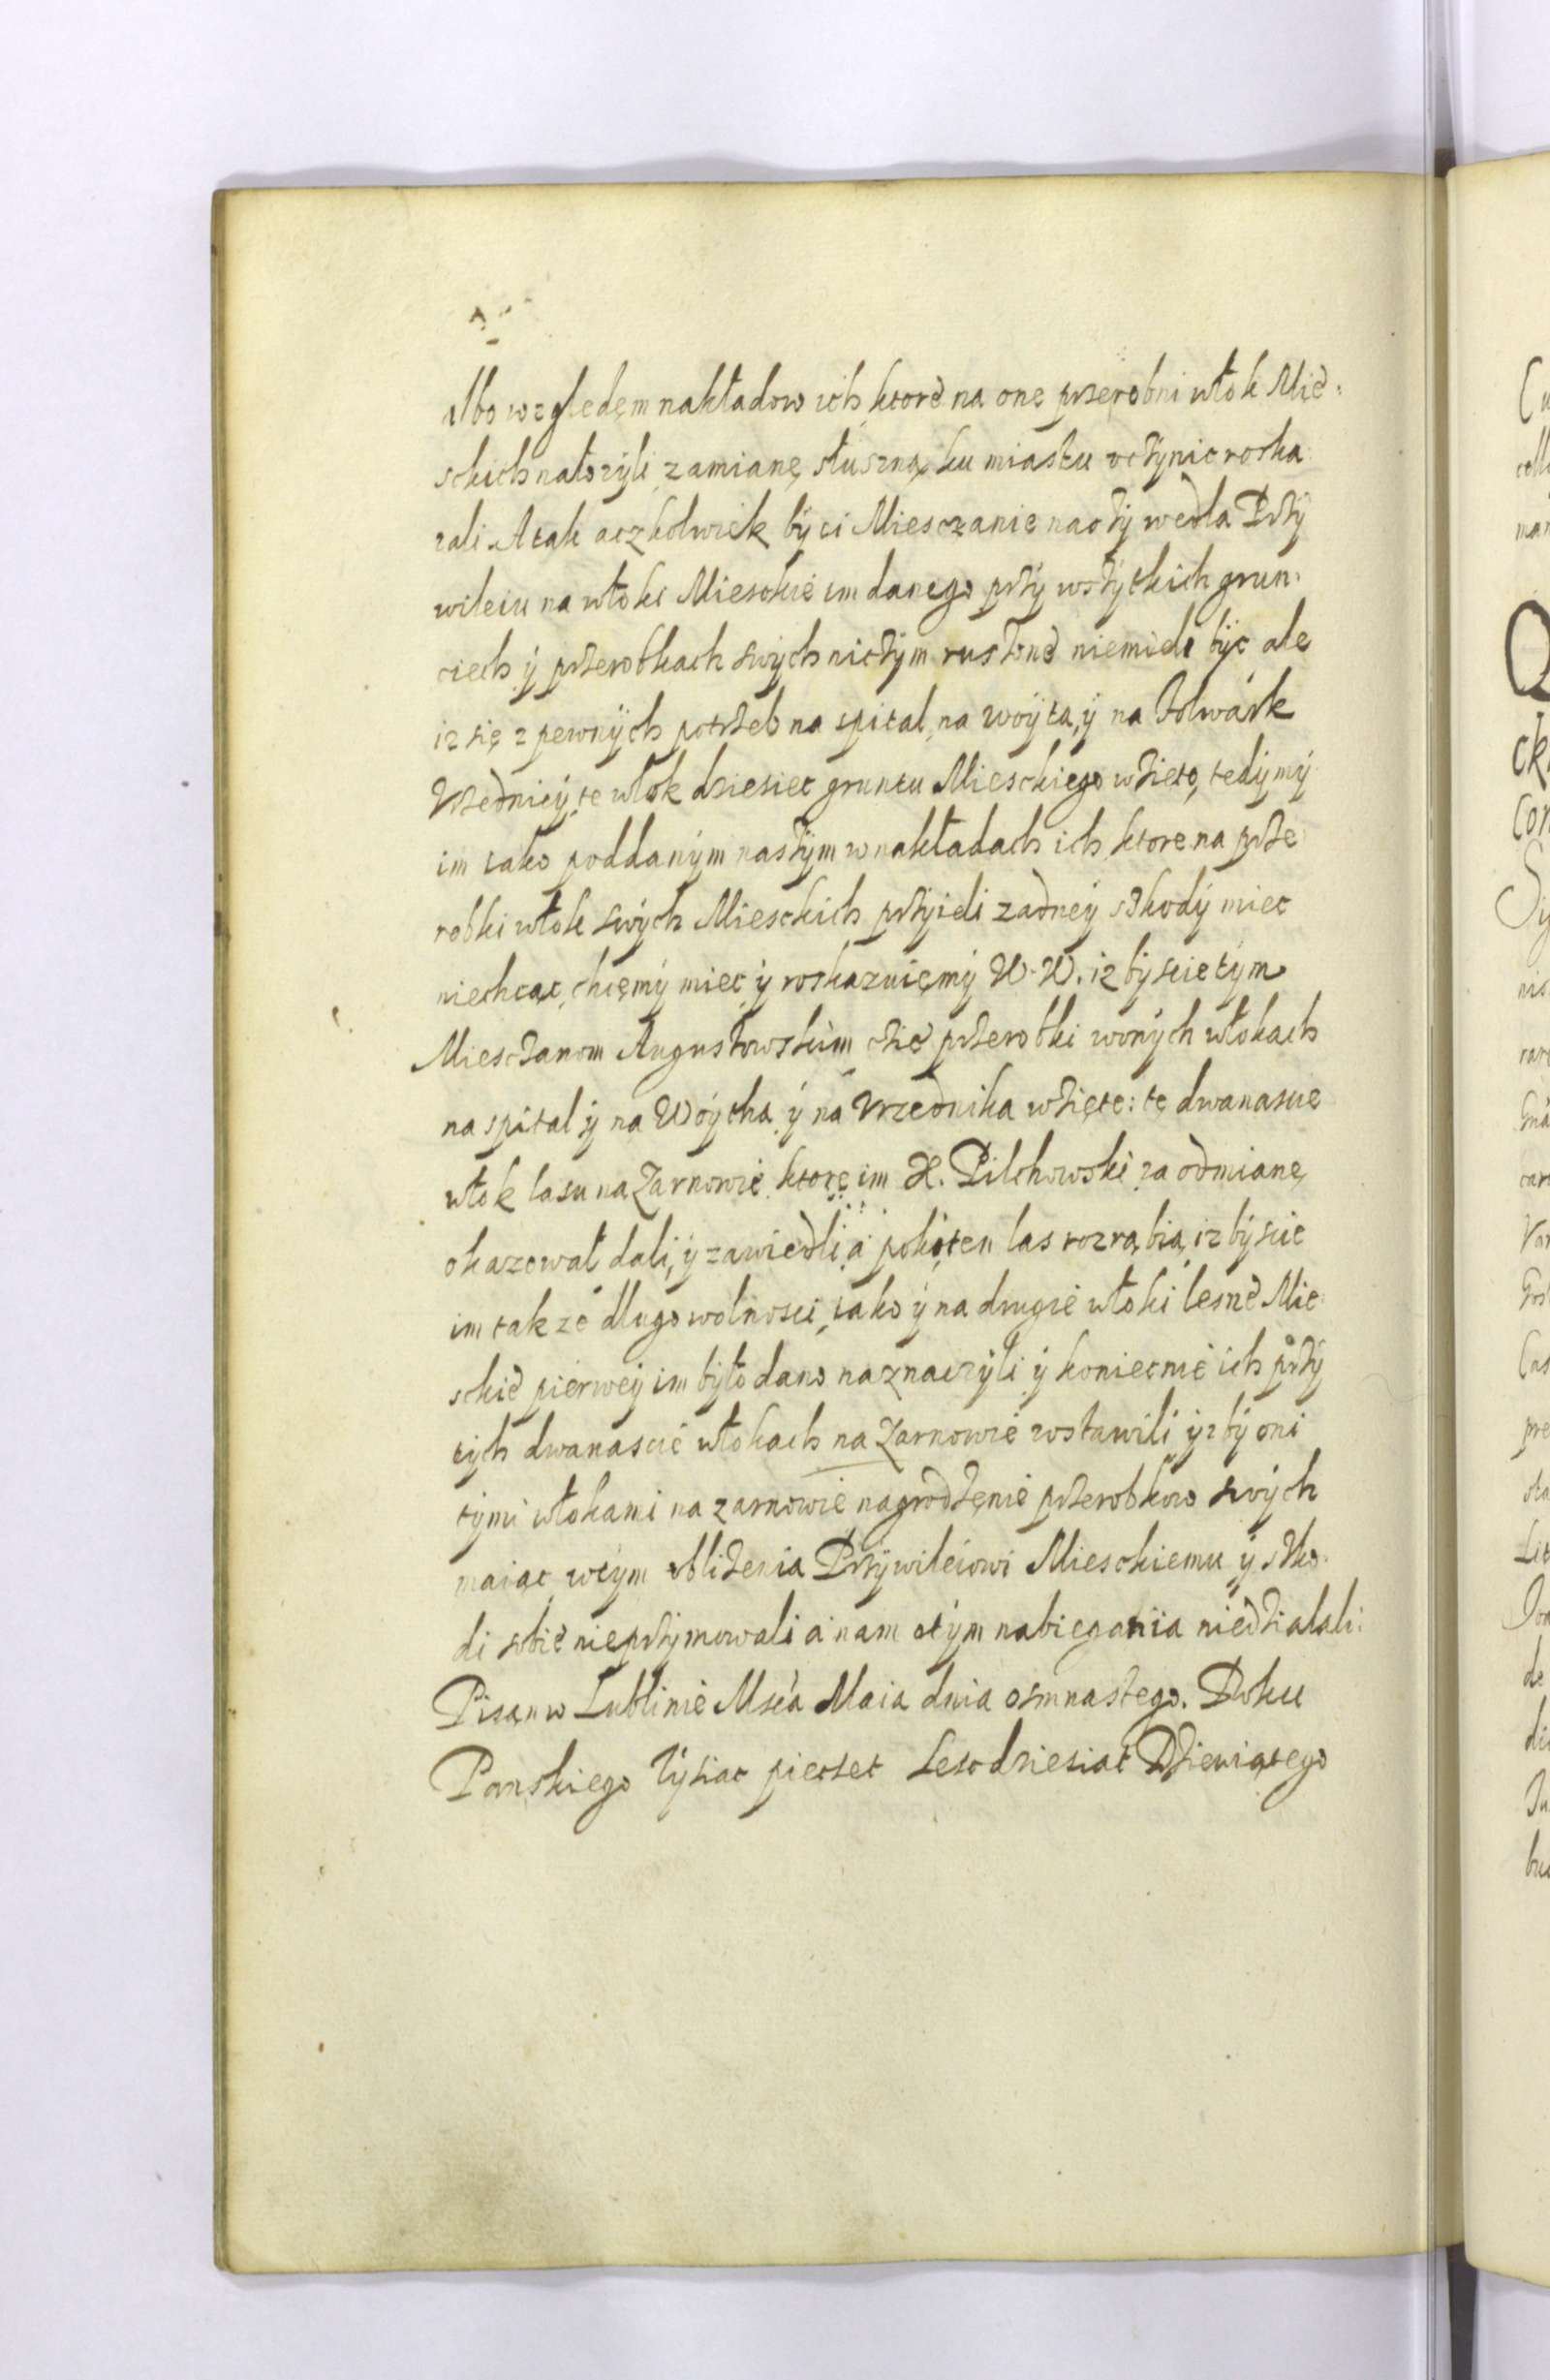 albo względęm nakładow ich, ktore na onę przerobni włok Mie-
sckich nałozyli, zamianę słuszną ku miastu vczynic roska
zali. A tak aczkolwiek by ci Miesczanie naszy wedla Przy
wileiu na włoki Miesckie im danego przy wszytkich grun-
ciech y przerobkach swych niczym ruszone niemieli byc ale
iz się z pewnych potrzeb na spital, na woyta, y na folwark
Vrzednicy, te włok dziesiec gruntu Miesckiego wzieto, tedy my
im iako poddanym naszym w nakładach ich ktore na prze
robki włok swych Miesckich przyieli zadney szkody miec
niechcąc, chcemy miec y roskazuięmy W. W. iz byscie tym
Miesczanom Augustowskim czie przerobki w onych włokach
na spital y na Woytha y na Vrzednika wzięte: tę dwanascie
włok lasu na Zarnowie ktorę im X. Pilchowski za odmianę
okazował dali, y zawiedli, a poki ten las rozrąbią, iz byscie
im tak ze dlugo wolnosci, iako y na drugie włoki lesne Mie-
sckie pierwey im było dano naznaczyli y koniecnie ich przy
tych dwanascie włokach na Zarnowie zostawili yz by oni
tymi włokami na zarnowie nagrodzęnie przerobkow swych
maiąc, w tym ubliżenia Przywileiowi Miesckiemu y szko-
di sobie nieprzymowali a nam o tym nabiegania niedzialali:
Pisan w Lublinie Msca Maia dnia osmnastego. Roku
Panskiego Tysiac piecset sescdziesiat Dziewiątego